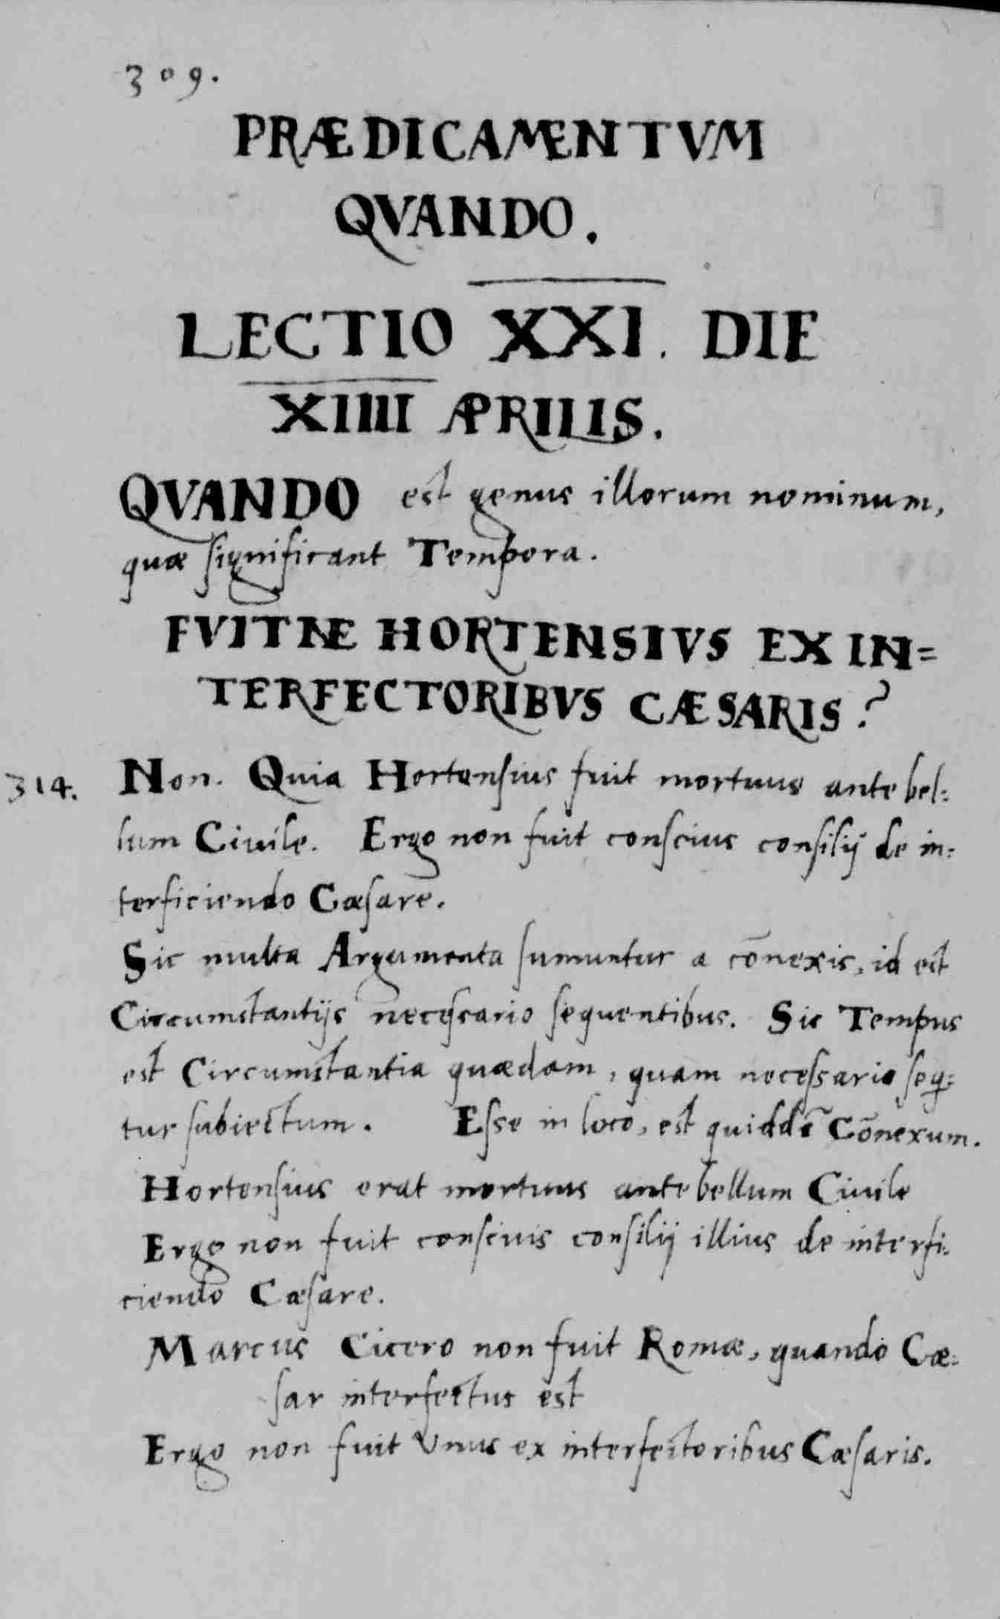 309.
PRÆDICAMENTVM
QVANDO.
LECTIO XXI. DIE
XIIII APRILIS.
QVANDO est genus illorum nominum,
quæ significant Tempora.
FVITNE HORTENSIVS EX IN=
TERFECTORIBVS CÆSARIS?
314. Non. Quia Hortensius fuit mortuus ante bel=
lum Ciuile. Ergo non fuit conscius consilij de in=
terficiendo Cæsare.
Sic multa Argumenta sumuntur a cōnexis, id est
Circumstantijs necessario sequentibus. Sic Tempus
est Circumstantia quædam, quam necessario seq̄=
tur subiectum. Esse in loco, est quiddā Cōnexum.
Hortensius erat mortuus ante bellum Ciuile
Ergo non fuit conscius consilij illius de interfi=
ciendo Cæsare.
Marcus Cicero non fuit Romæ, quando Cæ=
sar interfectus est
Ergo non fuit Vnus ex interfectoribus Cæsaris.